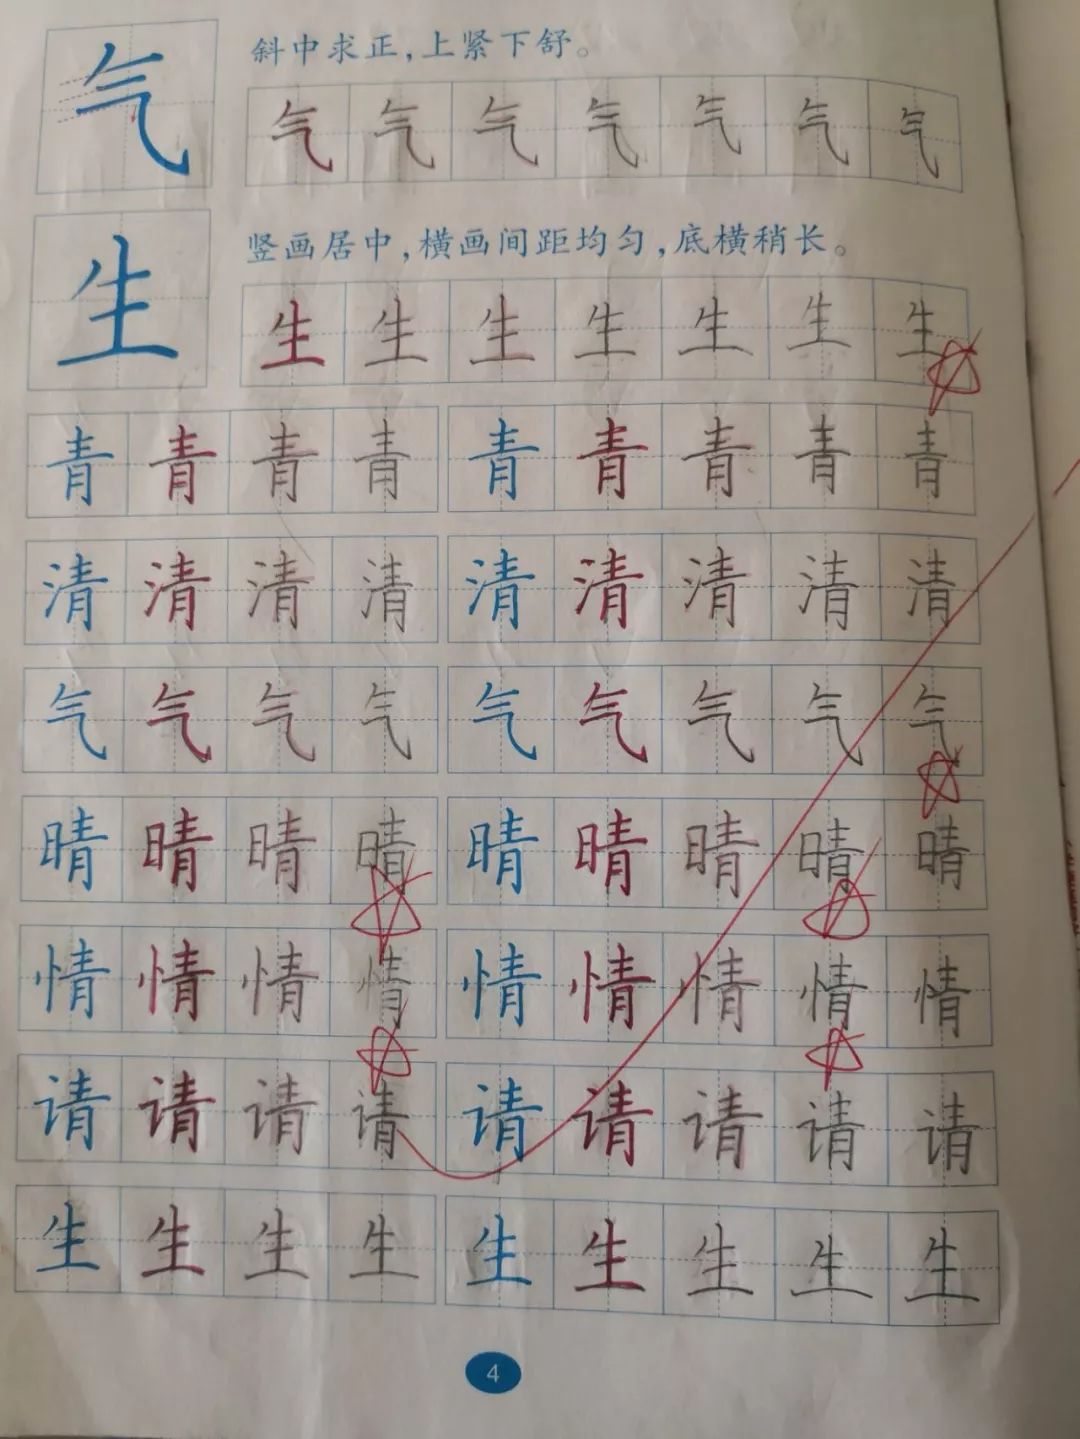 气 斜中求正,上紧下舒。
气气气气气气气
生 竖画居中,横画间距均匀,底横稍长。
生生生生生生生
青青青青 青青青青青
清清清清 清清清清清
气气气气 气气气气气
晴晴晴晴 晴晴晴晴晴
情情情情 情情情情情
请请请请 请请请请请
生生生生 生生生生生
4